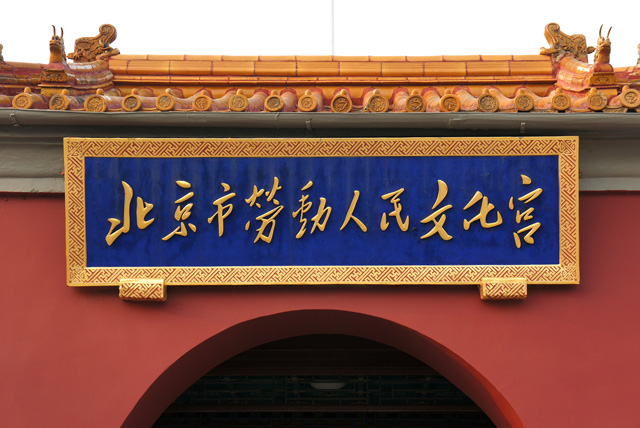 北京市勞動人民文化宮